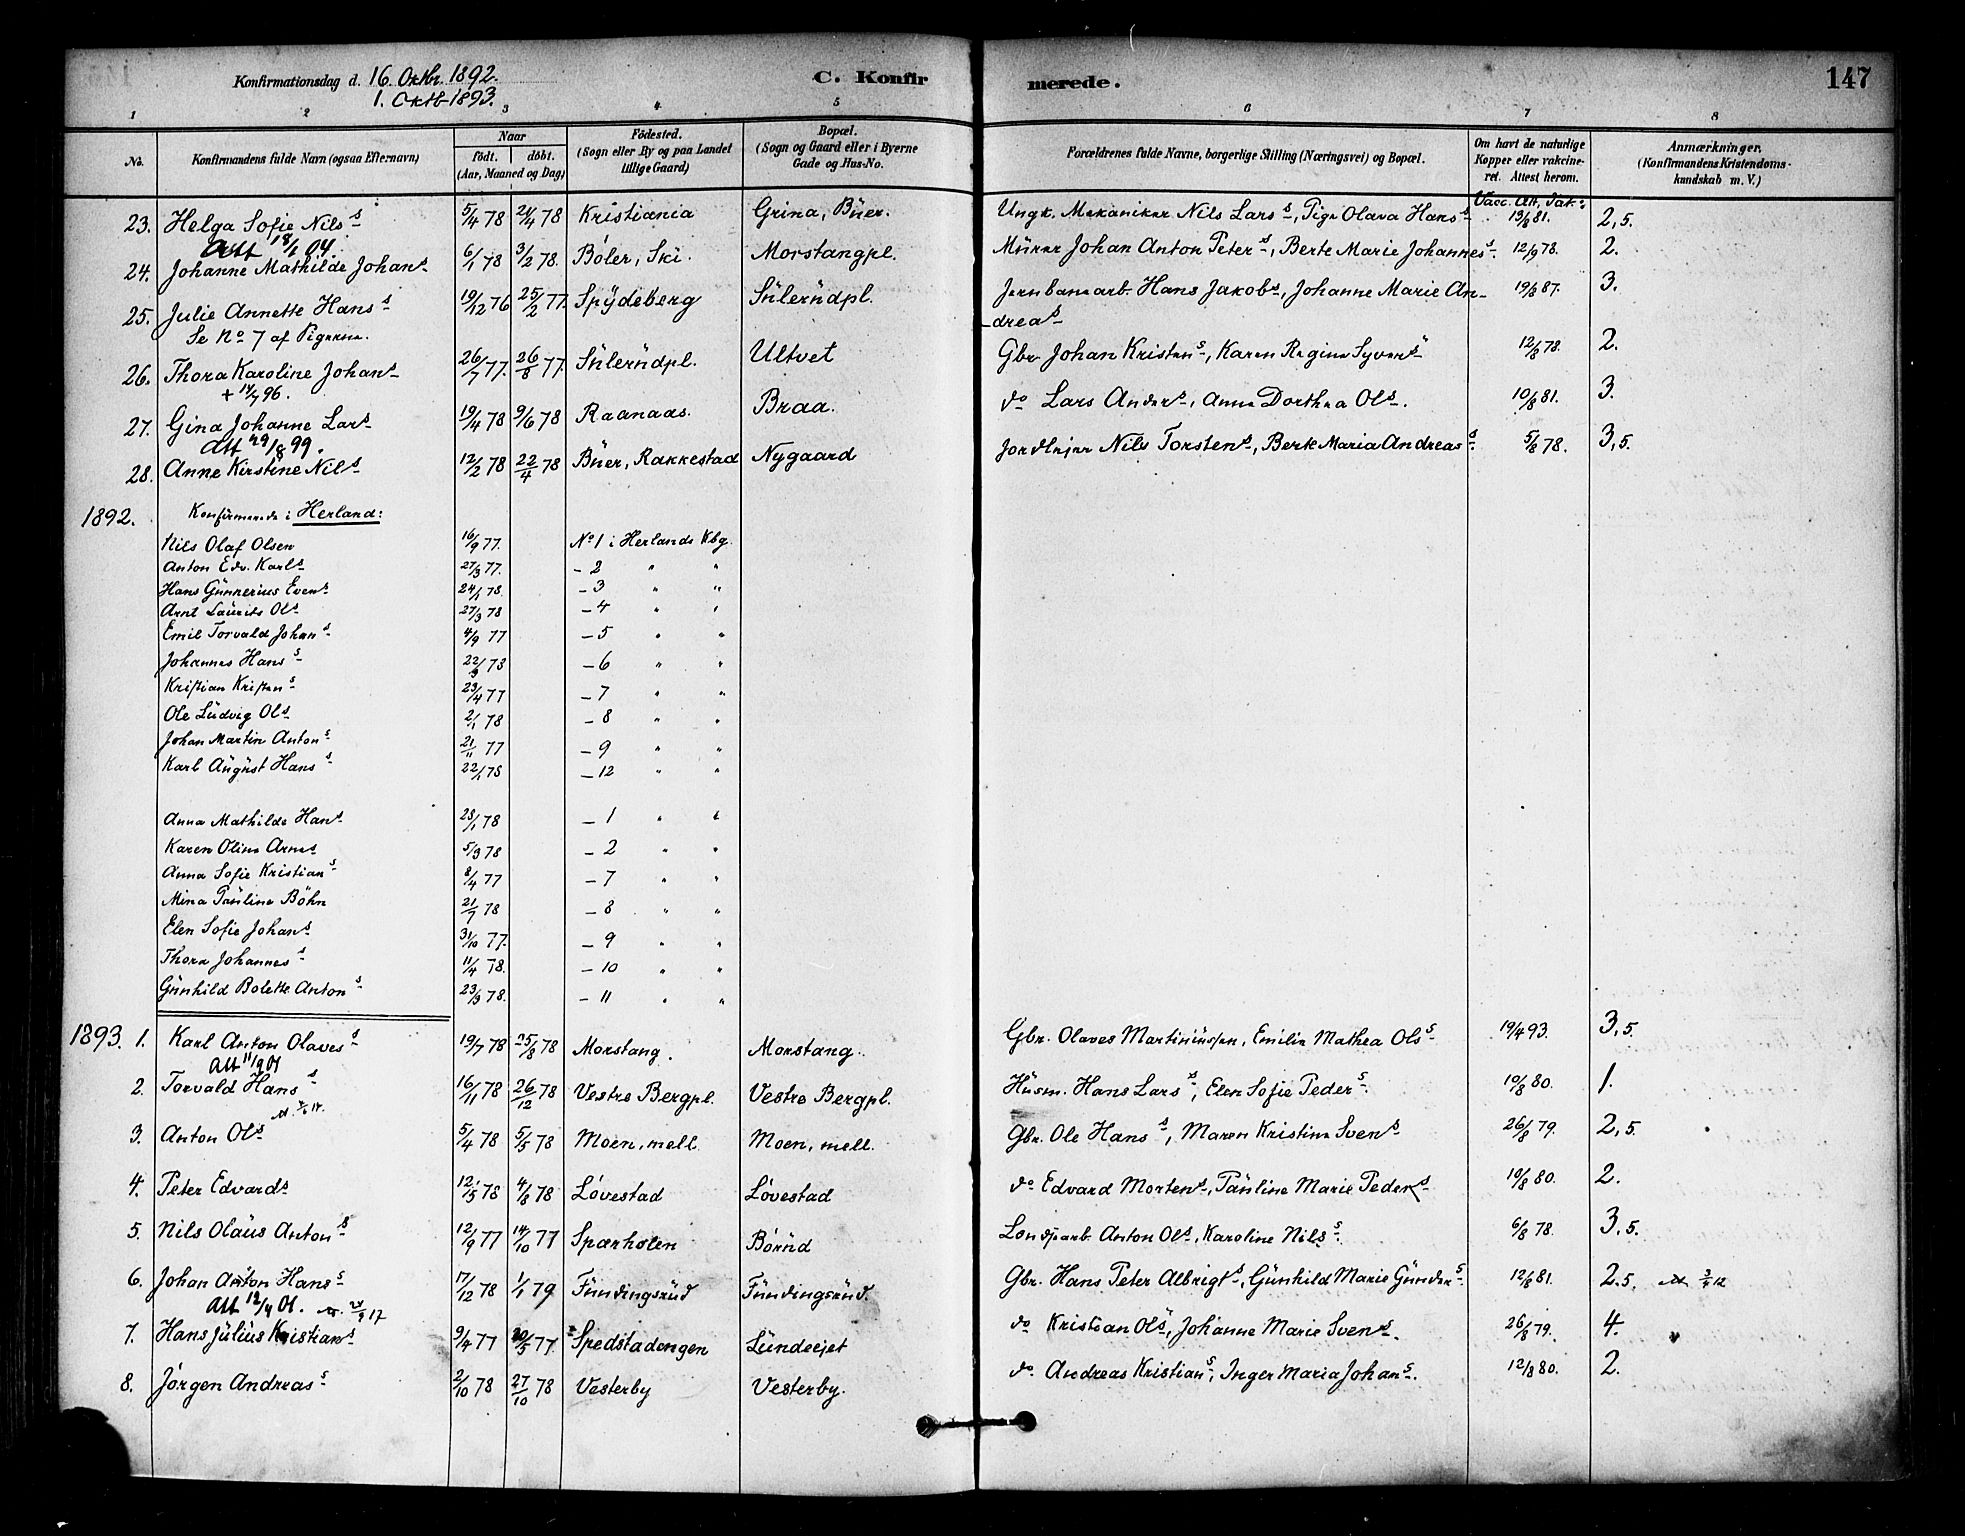 Konfirmationsdag d. 16. Oktbr. 1892. C. Konfirmerede. 147
1. Oktb 1893.
1 2 3 4 5 6 7 8
No. Konfirmandens fulde Navn (ogsaa Efternavn) Naar födt. döbt. (Aar, Maaned og Dag) Födested. (Sogn eller By og paa Landet tillige Gaard) Bopæl. (Sogn og Gaard eller i Byerne Gade og Hus-No. Forældrenes fulde Navne, borgerlige Stilling (Næringsvei) og Bopæl. Om havt de naturlige Kopper eller vakcineret. Attest herom. Anmærkninger. (Konfirmandens Kristendomskundskab m. V.)
Vacc. Att. Dat.:
23. Helga Sofie Nils s 5/4 78 24/4 78 Kristiania Grina, Büer. Ungk. Mekaniker Nils Lars s, Pige Olava Hans s 13/8 81. 2,5.
Att 18/1 04.
24. Johanne Mathilde Johans 6/1 78 3/2 78. Böler, Ski. Morstangpl. Mürer Johan Anton Peter s, Berte Marie Johannes s. 12/9 78. 2.
25. Julie Annette Hans s 19/12 76 25/2 77. Spydeberg Sülerüdpl. Jernbanearb. Hans Jakobs, Johanne Marie An- 19/8 87. 3.
Se No 7 af Pigerne. dreas
26. Thora Karoline Johans 26/7 77. 26/8 77. Sülerüdpl. Ultvet Gbr Johan Kristen s, Karen Regine Syver s 12/8 78. 2.
+ 14/7 96.
27. Gina Johanne Lars 19/4 78 9/6 78 Raanaas. Braa. do Lars Anders, Anna Dorthea Ols. 10/8 81. 3.
Att 29/8 99.
28. Anne Kirstine Nils 12/2 78 22/4 78 Büer, Rakkestad Nygaard Jordlejer Nils Torstens, Berte Maria Andreas s. 5/8 78. 3,5.
1892. Konfirmerede i Herland:
Nils Olaf Olsen 16/9 77. No 1 i Herlands Kbg.
Anton Edv. Karls 27/3 77. - 2 " "
Hans Günnerius Evens 24/1 78. - 3 " "
Arnt Laurits Ols 27/3 78 - 4 " "
Emil Torvald Johan s 4/9 77 - 5 " "
Johannes Hans s 22/3 78 - 6 " "
Kristian Kristen s 23/4 77 - 7 " "
Ole Lüdvig Ols 2/1 78 - 8 " "
Johan Martin Anton s 21/11 77 - 9 " "
Karl Aügüst Hans s 22/1 78 - 12 " "
Anna Mathilde Hans 28/1 78 - 1 " "
Karen Oline Arnes 5/3 78 - 2 " "
Anna Sofie Kristian s 8/4 77 - 7 " "
Mina Paüline Böhn 21/7 78 - 8 " "
Elen Sofie Johans 31/10 77. - 9 " "
Thora Johannes s 11/4 78. - 10 " "
Günhild Bolette Anton s 23/3 78. - 11 " "
1893. 1. Karl Anton Olaves s 19/7 78 25/8 78 Morstang. Morstang. Gbr. Olaves Martiniüssen, Emilie Mathea Ols s 19/4 93. 3,5.
Att 11/9 01
2. Torvald Hans s 16/11 78 26/12 78 Vestre Bergpl. Vestre Bergpl. Hüsm. Hans Lars s, Elen Sofie Peder s. 10/8 80. 1.
3. Anton Ols 5/4 78 5/5 78 Moen, mell. Moen, mell. Gbr. Ole Hans s, Maren Kristine Svens 26/8 79. 2,5.
4. Peter Edvards 12/5 78 4/8 78 Lövestad Lövestad do Edvard Mortens, Paüline Marie Peders 10/8 80. 2.
5. Nils Olaüs Anton s 12/9 77 14/10 77 Sparholen Börüd Londsarb. Anton Ols, Karoline Nils s. 6/8 78. 3,5.
6. Johan Anton Hans s 17/12 78 1/1 79 Fündingsrüd Fündingsrüd. Gbr. Hans Peter Albrigts, Günhild Marie Günder s. 12/8 81. 2,5.
Att 12/4 01.
7. Hans Jülius Kristians 9/4 77 20/5 77 Spedstadengen Lündeejet do Kristian Ols, Johanne Marie Svens. 26/8 79. 4.
8. Jörgen Andreas s 2/10 78 27/10 78 Vesterby Vesterby. do. Andreas Kristian s, Inger Maria Johan s. 12/8 80. 2.